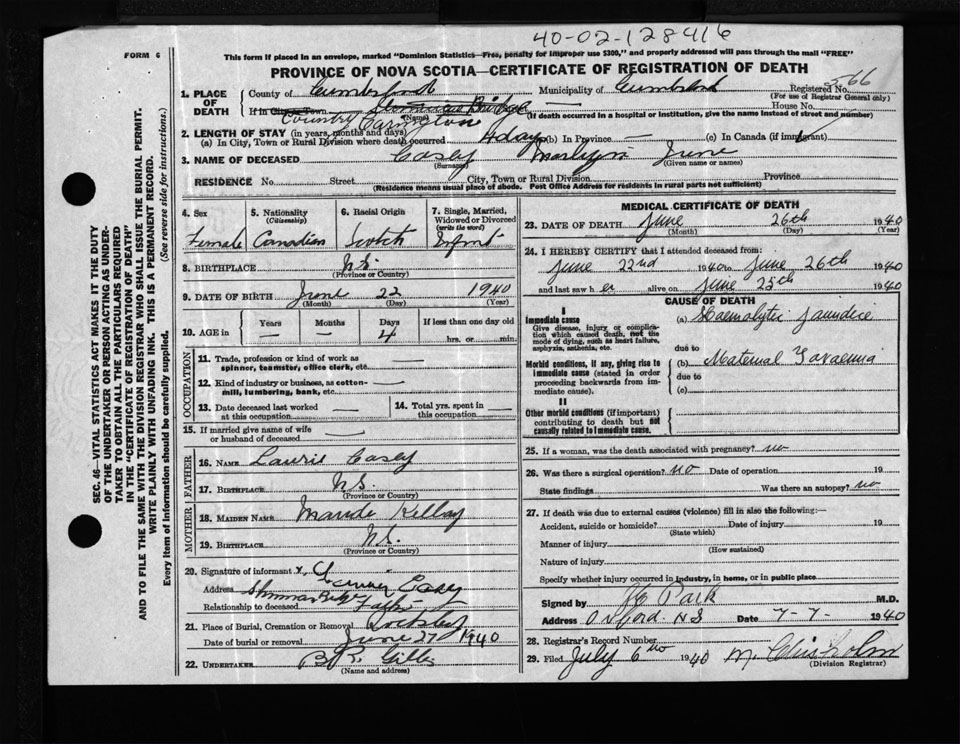 40-02-128416
FORM 6
This form if placed in an envelope, marked "Dominion Statistics—Free, penalty for improper use $300," and properly addressed will pass through the mail "FREE"
PROVINCE OF NOVA SCOTIA—CERTIFICATE OF REGISTRATION OF DEATH
SEC. 46—VITAL STATISTICS ACT MAKES IT THE DUTY
OF THE UNDERTAKER OR PERSON ACTING AS UNDER-
TAKER TO OBTAIN ALL THE PARTICULARS REQUIRED
IN THE "CERTIFICATE OF REGISTRATION OF DEATH"
AND TO FILE THE SAME WITH THE DIVISION REGISTRAR WHO SHALL ISSUE THE BURIAL PERMIT.
WRITE PLAINLY WITH UNFADING INK. THIS IS A PERMANENT RECORD.
Every item of information should be carefully supplied. (See reverse side for instructions.)
1. PLACE OF DEATH
County of Cumberland Municipality of Cumberland Registered No. 566
(For use of Registrar General only)
If in City or Town House No.
Country (Name) (If death occurred in a hospital or institution, give the name instead of street and number)
2. LENGTH OF STAY (in years, months and days)
(a) In City, Town or Rural Division where death occurred 4 days (b) In Province — (c) In Canada (if immigrant)
3. NAME OF DECEASED Casey Marilyn June
(Surname) (Given name or names)
RESIDENCE No. Street City, Town or Rural Division Province
(Residence means usual place of abode. Post Office Address for residents in rural parts not sufficient)
4. Sex
Female
5. Nationality
(Citizenship)
Canadian
6. Racial Origin
Scotch
7. Single, Married, Widowed or Divorced
(write the word)
Infant
8. BIRTHPLACE N.S.
(Province or Country)
9. DATE OF BIRTH June 22 1940
(Month) (Day) (Year)
10. AGE in Years Months Days If less than one day old
— — 4 hrs. or min.
OCCUPATION
11. Trade, profession or kind of work as spinner, teamster, office clerk, etc. —
12. Kind of industry or business, as cotton-mill, lumbering, bank, etc. —
13. Date deceased last worked at this occupation —
14. Total yrs. spent in this occupation —
15. If married give name of wife or husband of deceased —
FATHER
16. NAME Laurie Casey
17. BIRTHPLACE N.S.
(Province or Country)
MOTHER
18. MAIDEN NAME Maude
19. BIRTHPLACE N.S.
(Province or Country)
20. Signature of informant x Casey
Address
Relationship to deceased Father
21. Place of Burial, Cremation or Removal
Date of burial or removal June 27 1940
22. UNDERTAKER B.R.
(Name and address)
MEDICAL CERTIFICATE OF DEATH
23. DATE OF DEATH June 26th 1940
(Month) (Day) (Year)
24. I HEREBY CERTIFY that I attended deceased from:
June 22nd 1940 to June 26th 1940
and last saw her alive on June 25th 1940
CAUSE OF DEATH
I
Immediate cause
Give disease, injury or complication which caused death, not the mode of dying, such as heart failure, asphyxia, asthenia, etc.
(a) Haemolytic Jaundice
due to
Morbid conditions, if any, giving rise to immediate cause (stated in order proceeding backwards from immediate cause).
(b) Maternal Toxaemia
due to
(c)
II
Other morbid conditions (if important) contributing to death but not causally related to immediate cause.
25. If a woman, was the death associated with pregnancy? no
26. Was there a surgical operation? no Date of operation 19
State findings Was there an autopsy? no
27. If death was due to external causes (violence) fill in also the following:—
Accident, suicide or homicide? Date of injury 19
(State which)
Manner of injury
(How sustained)
Nature of injury
Specify whether injury occurred in industry, in home, or in public place
Signed by Park M.D.
Address Oxford. N.S Date 7-7- 1940
28. Registrar's Record Number
29. Filed July 6th 1940 M. Chisholm
(Division Registrar)